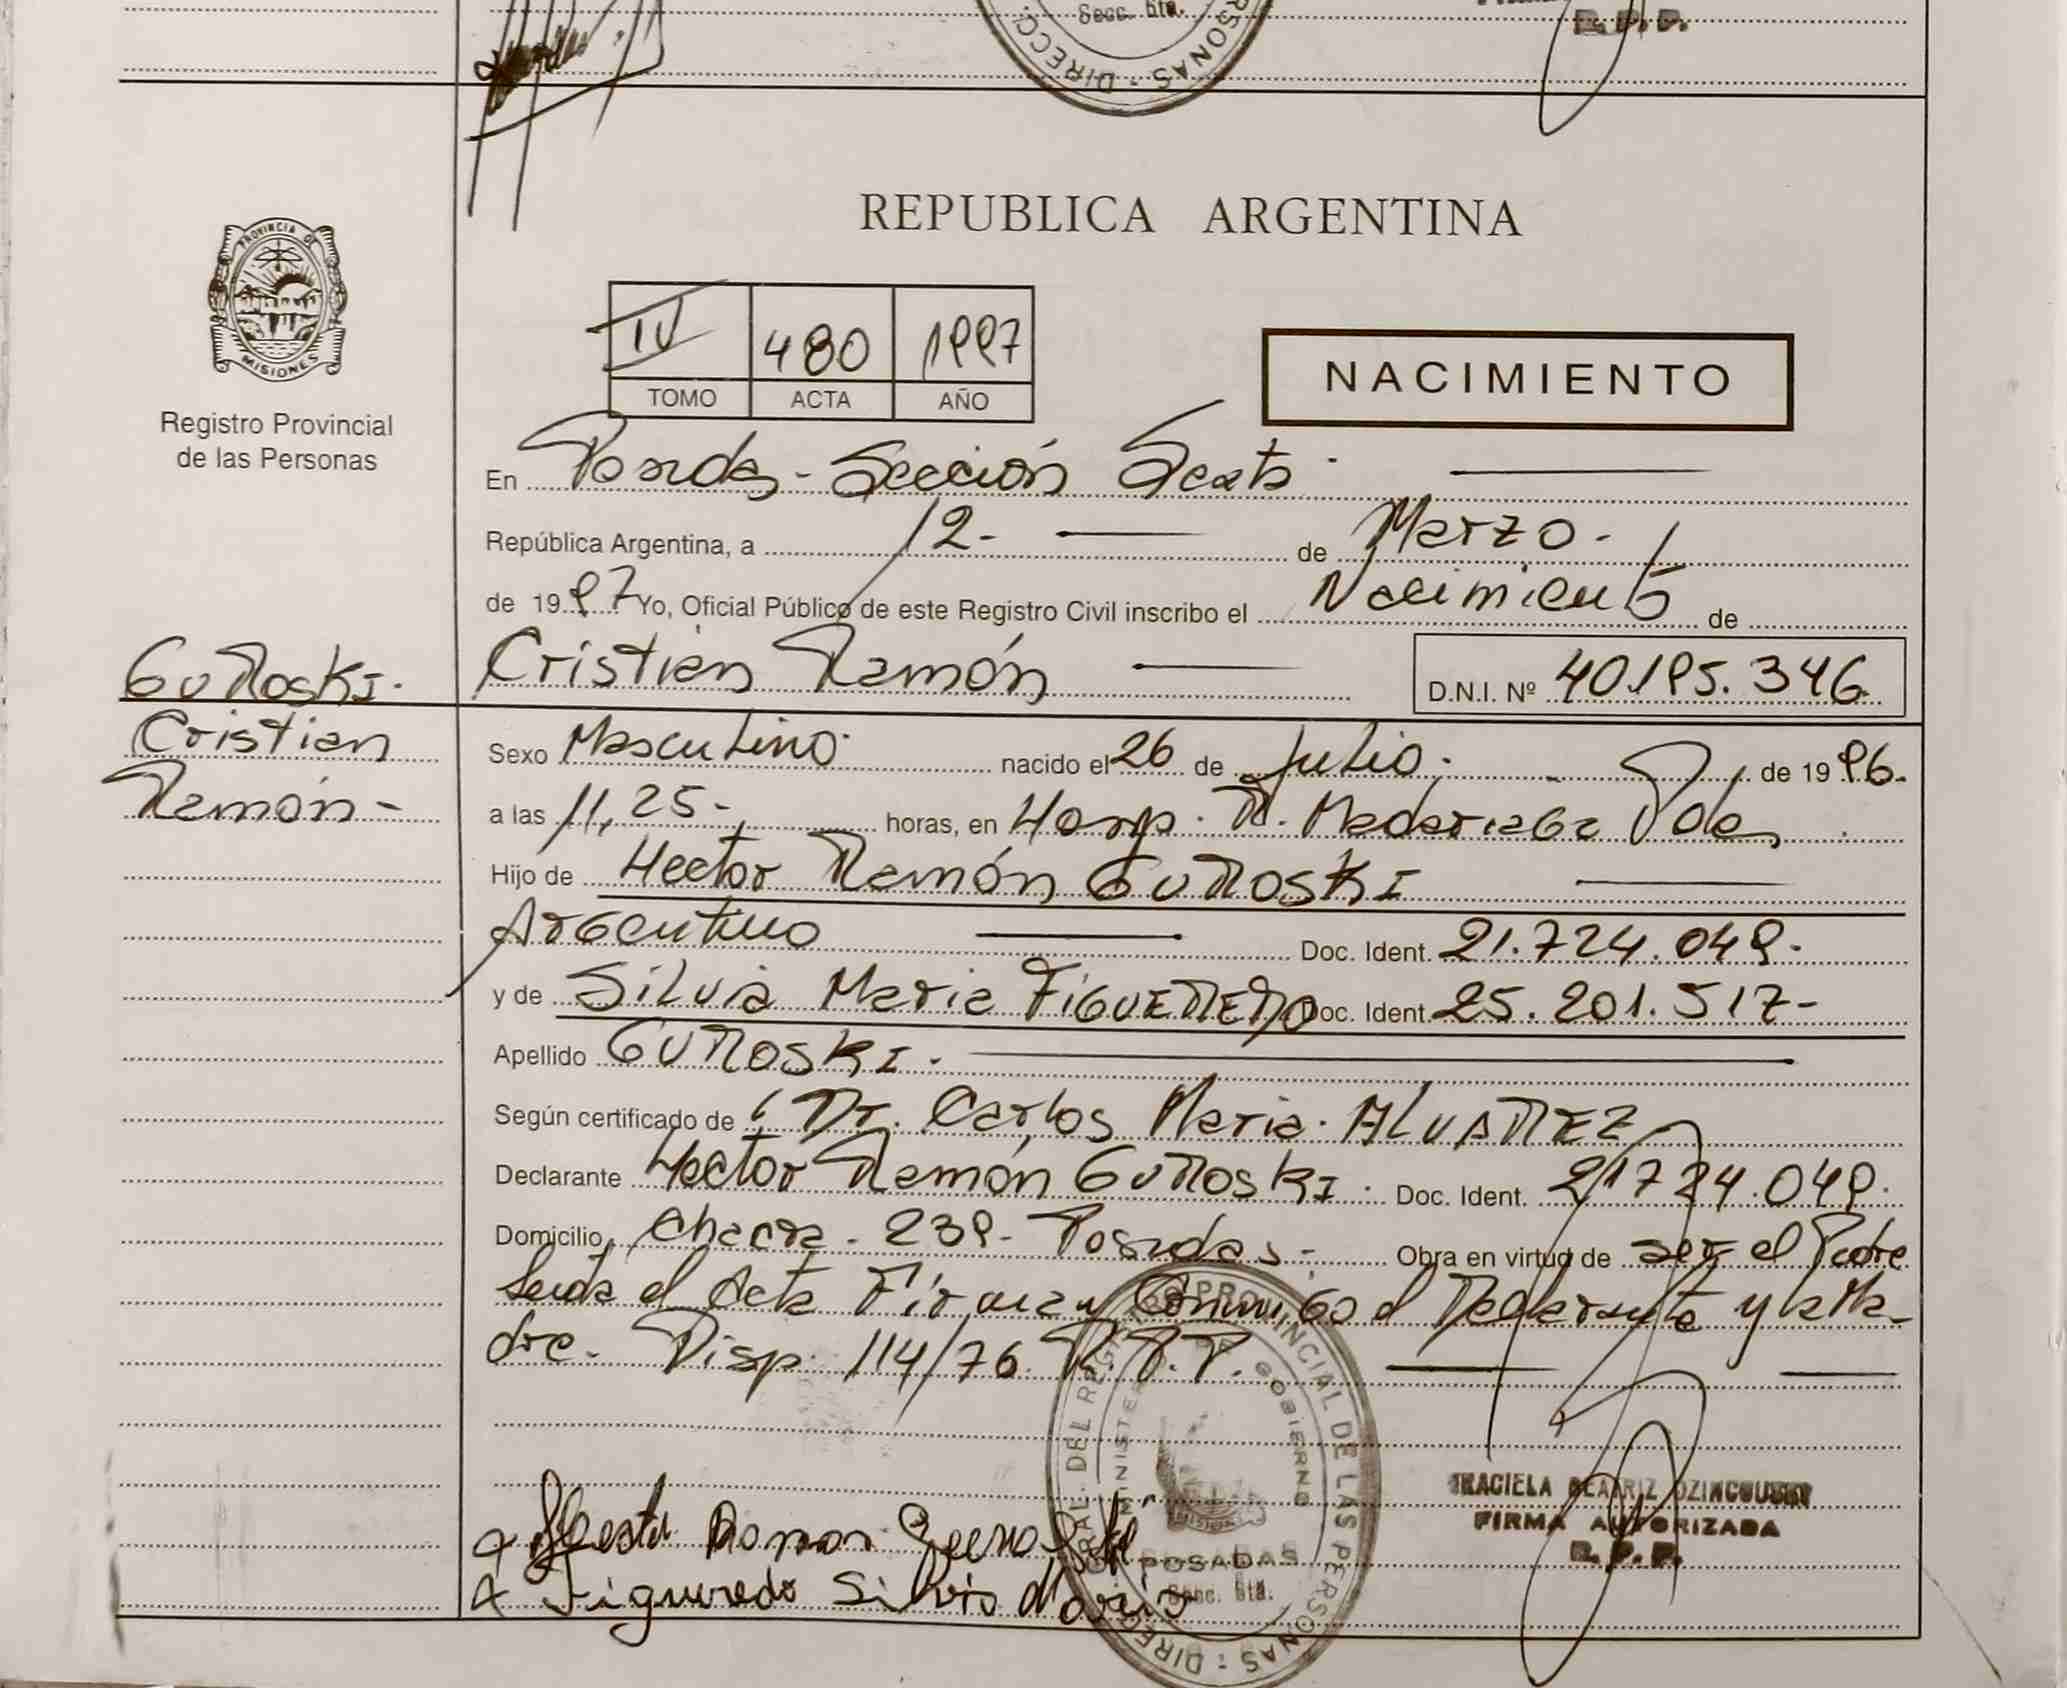 Secc. 6ta.
DIRECC
RSONAS
R.P.P.
PROVINCIA DE
MISIONES
Registro Provincial
de las Personas
REPUBLICA ARGENTINA
IV 480 1997
TOMO ACTA AÑO
NACIMIENTO
En Posadas - Sección Sexta -
República Argentina, a 12 - de Marzo -
de 1997 Yo, Oficial Público de este Registro Civil inscribo el Nacimiento de
Cristian Ramón D.N.I. Nº 40195.346
GuRoski.
Cristian
Ramón -
Sexo Masculino nacido el 26 de Julio. de 1996.
a las 11,25 - horas, en Hosp. R. Madariaga Pdas
Hijo de Hector Ramón GuRoskI
Argentino Doc. Ident. 21.724.049.
y de Silvia Maria FIGUEREDO Doc. Ident. 25.201.517-
Apellido GuRoskI.
Según certificado de Dr. Carlos Maria. ALVAREZ
Declarante Hector Ramón GuRoskI. Doc. Ident. 21724.049.
Domicilio Chacra - 239 - Posadas - Obra en virtud de ser el Padre
Leída el Acta Firman Conmigo el Declarante y la Ma-
dre. Disp. 114/76 R.P.P.
GRACIELA BEATRIZ
FIRMA AUTORIZADA
R.P.P.
Hector Ramon
Figueredo Silvia Maria
DIRECC GRAL. DEL REGISTRO PROVINCIAL DE LAS PERSONAS
MINISTERIO DE GOBIERNO
MISIONES
POSADAS
Secc. 6ta.